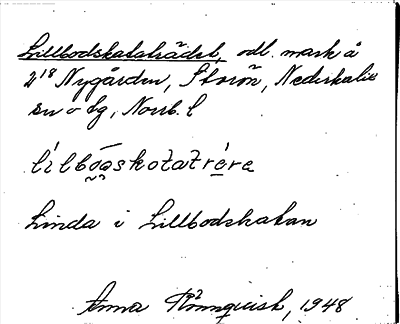 Lillbodskataträdet, odl. mark å
2¹⁸ Nygården, Storön, Nederkalix
sn o tg, Norrb. l
Linda i Lillbodskatan
Anna Rönnquist, 1948